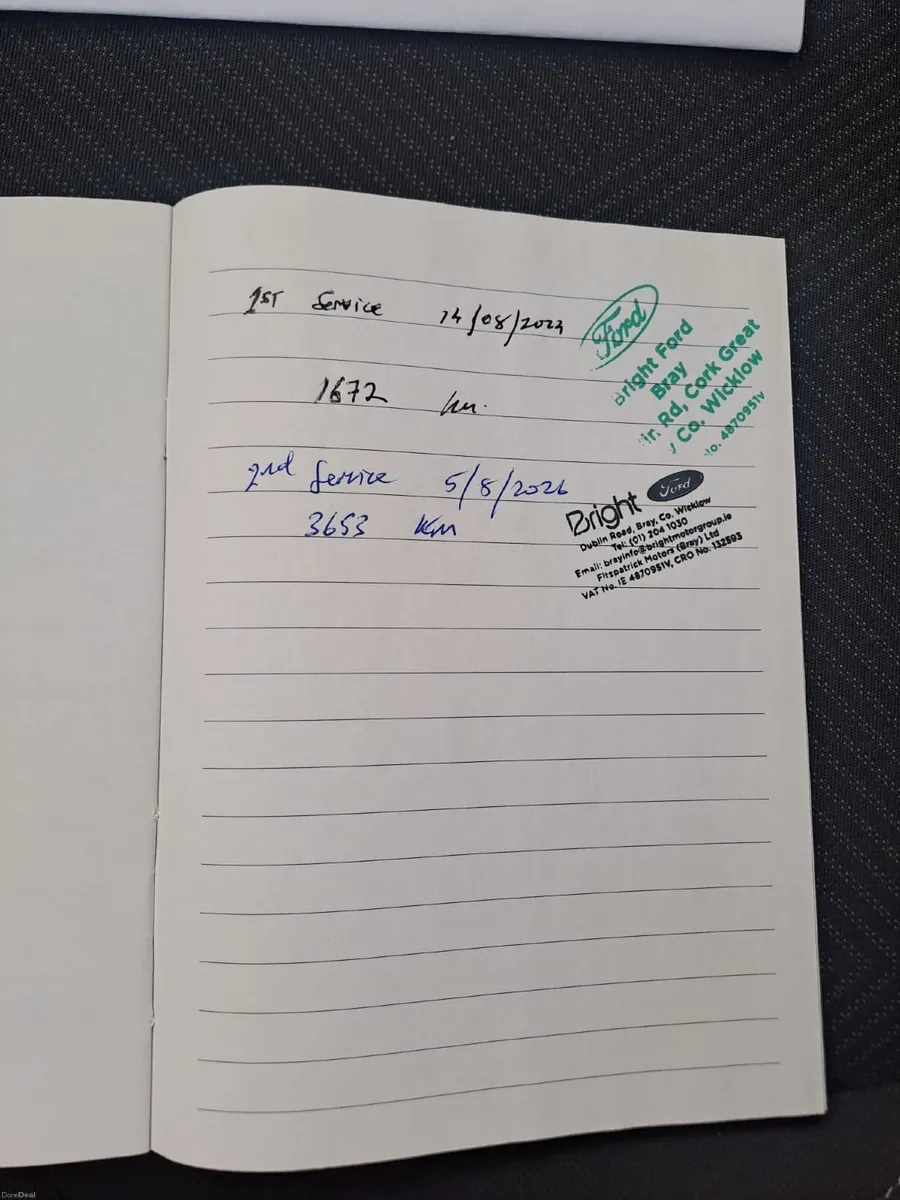 1ST Service 14/08/2023
1672 km.
2nd Service 5/8/2026
3653 Km
Ford
Bright Ford
Bray
Rd, Cork Great
Co. Wicklow
No. 4870951v
Bright Ford
Dublin Road, Bray, Co. Wicklow
Tel: (01) 204 1030
Email: brayinfo@brightmotorgroup.ie
Fitzpatrick Motors (Bray) Ltd
VAT No. IE 4870951V, CRO No: 132593
DoneDeal